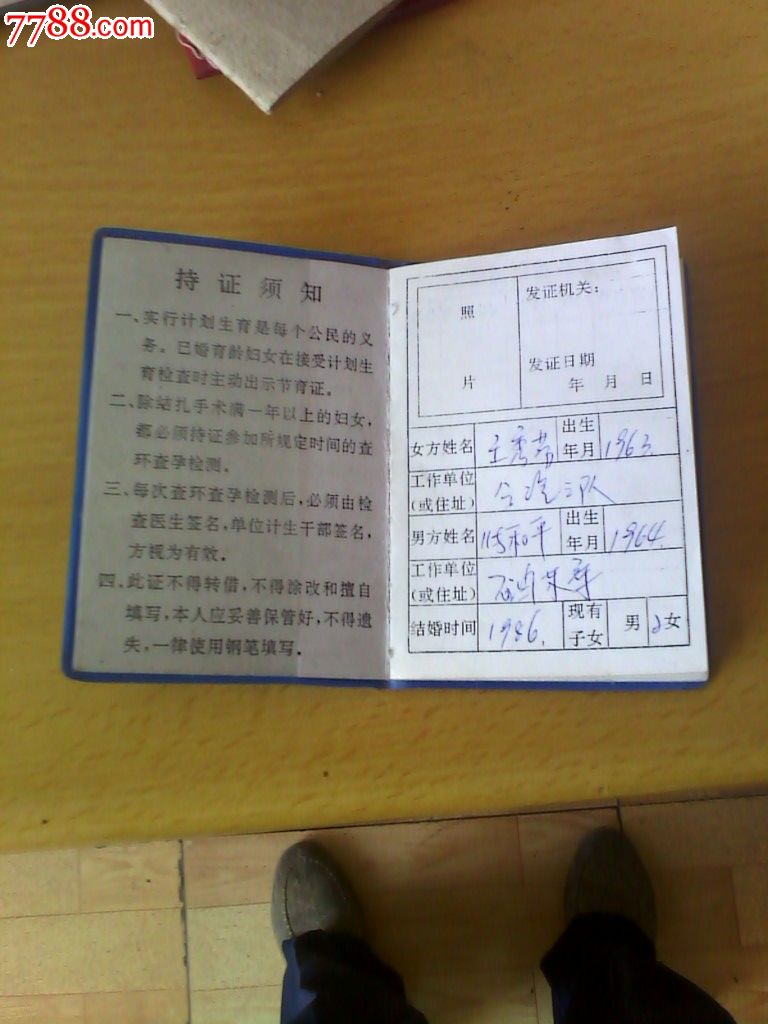 7788.com
持证须知
一、实行计划生育是每个公民的义
务。已婚育龄妇女在接受计划生
育检查时主动出示节育证。
二、除结扎手术满一年以上的妇女，
都必须持证参加所规定时间的查
环查孕检测。
三、每次查环查孕检测后，必须由检
查医生签名，单位计生干部签名，
方视为有效。
四、此证不得转借，不得涂改和擅自
填写，本人应妥善保管好，不得遗
失，一律使用钢笔填写。
照
片
发证机关：
发证日期
年 月 日
女方姓名
出生
年月 1963
工作单位
(或住址)
男方姓名 和平
出生
年月 1964.
工作单位
(或住址)
结婚时间 1986.
现有
子女
男 2女